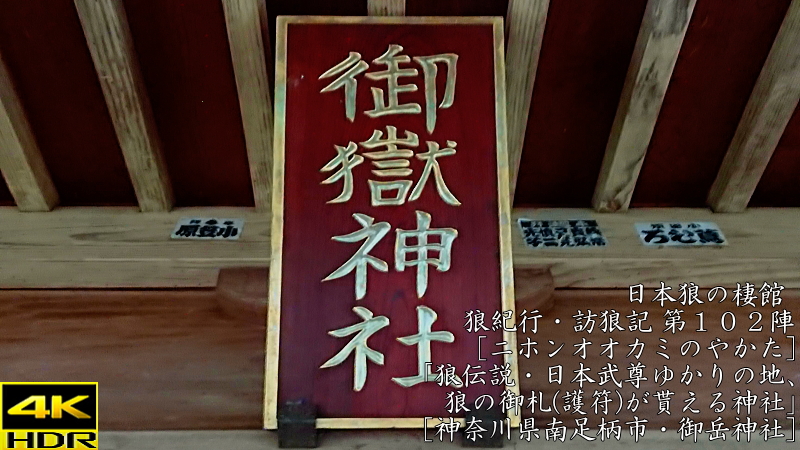 御嶽神社
日本狼の棲館
狼紀行・訪狼記 第１０２陣
[ニホンオオカミのやかた]
「狼伝説・日本武尊ゆかりの地、
狼の御札(護符)が貰える神社」
[神奈川県南足柄市・御岳神社]
4K
HDR